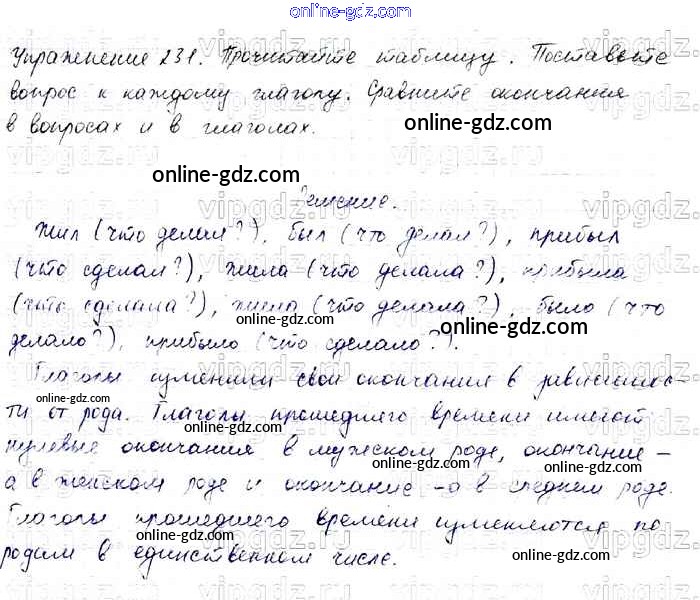 online-gdz.com
Упражнение 231. Прочитайте таблицу. Поставьте
вопрос к каждому глаголу. Сравните окончания
в вопросах и в глаголах.
online-gdz.com
online-gdz.com
Решение.
Жил (что делал?), был (что делал?), прибыл
(что сделал?), жила (что делала?), прибыла
(что сделала?), жила (что делала?), было (что
online-gdz.com
online-gdz.com
делало?), прибыло (что сделало?).
Глаголы изменили свои окончания в зависимос-
online-gdz.com
ти от рода. Глаголы прошедшего времени имеют
нулевые окончания в мужском роде, окончание -
online-gdz.com
online-gdz.com
а в женском роде и окончание -о в среднем роде.
online-gdz.com
Глаголы прошедшего времени изменяются по
родам в единственном числе.
online-gdz.com
online-gdz.com